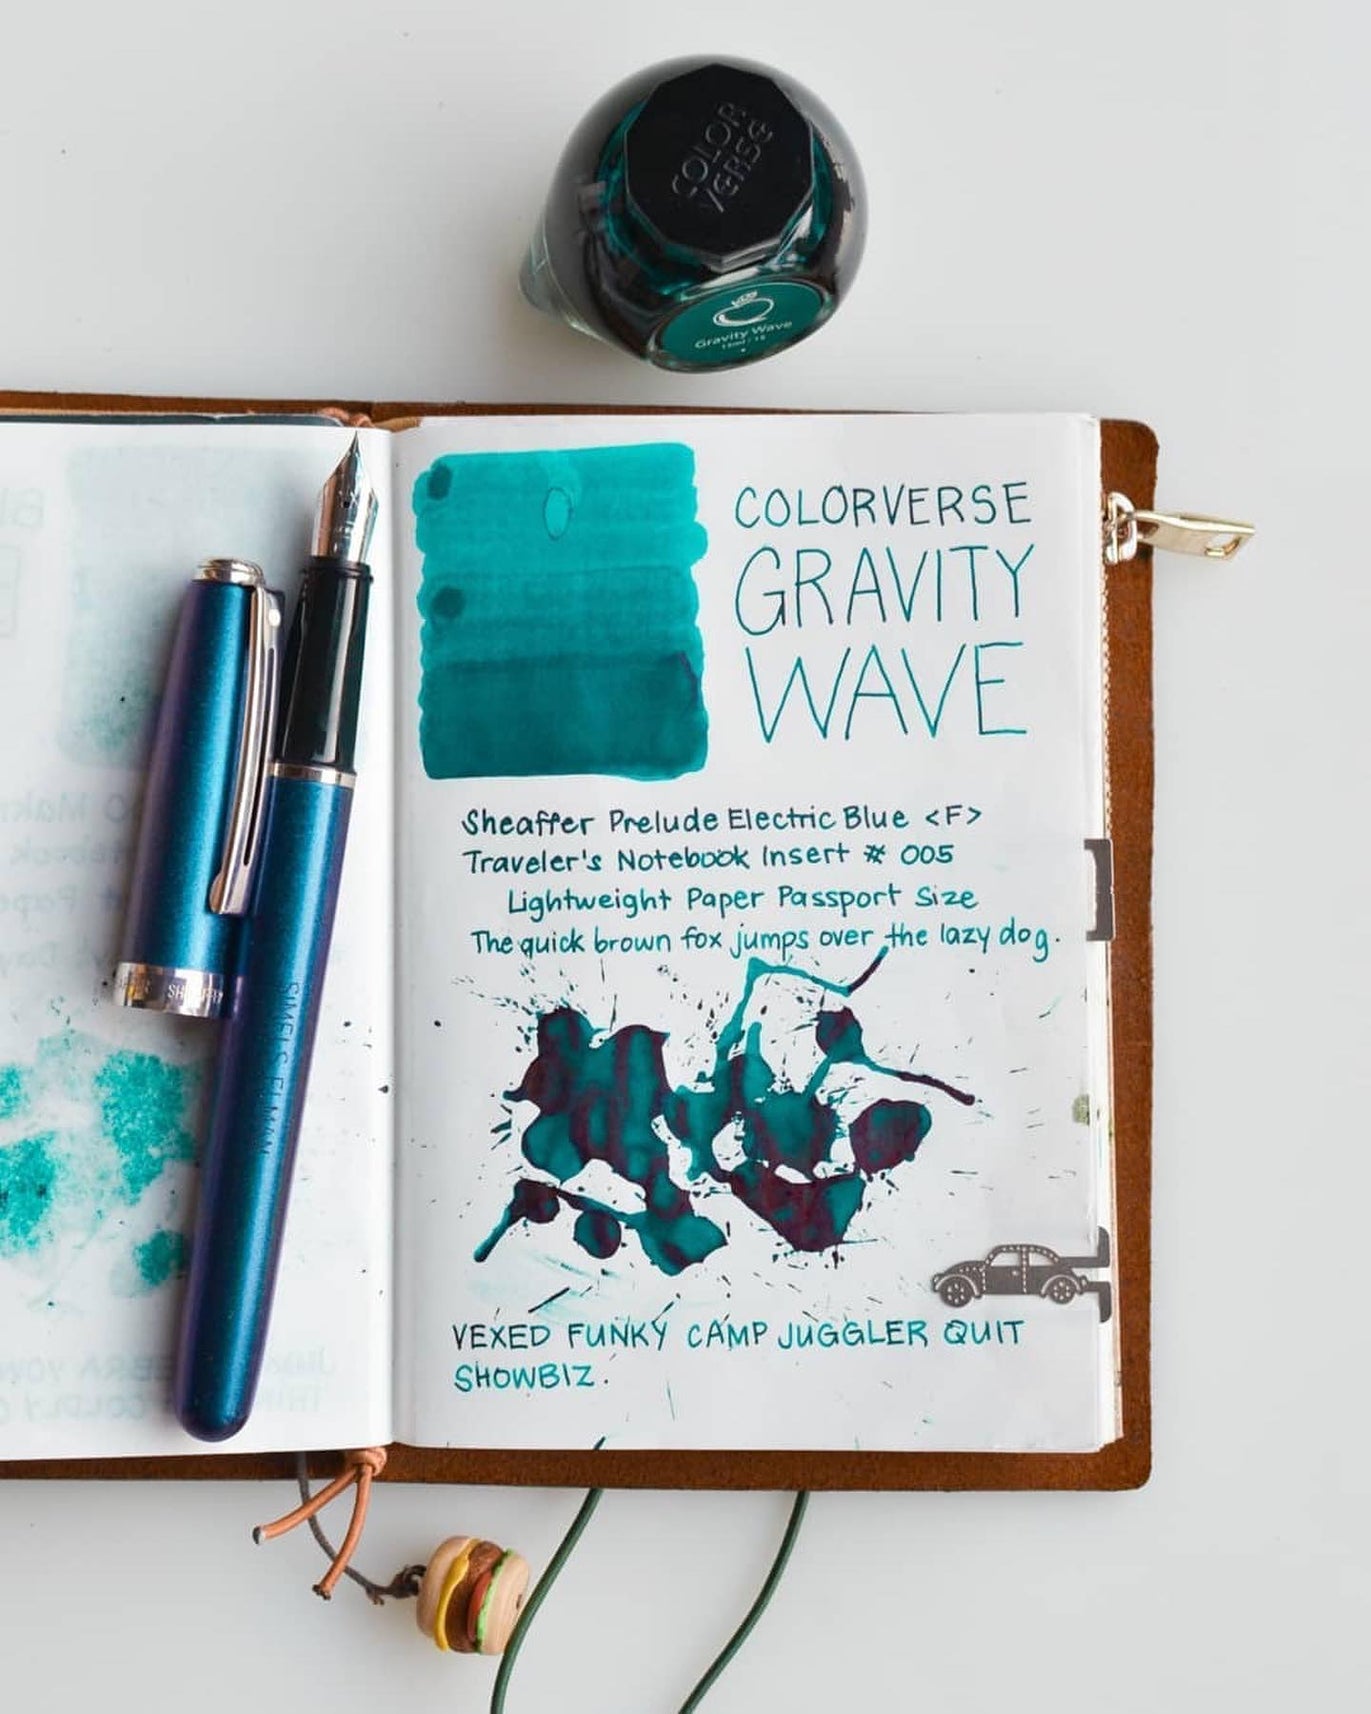 COLOR
VERSE
Gravity Wave
COLORVERSE
GRAVITY
WAVE
Sheaffer Prelude Electric Blue <F>
Traveler's Notebook Insert # 005
Lightweight Paper Passport Size
The quick brown fox jumps over the lazy dog.
VEXED FUNKY CAMP JUGGLER QUIT
SHOWBIZ.